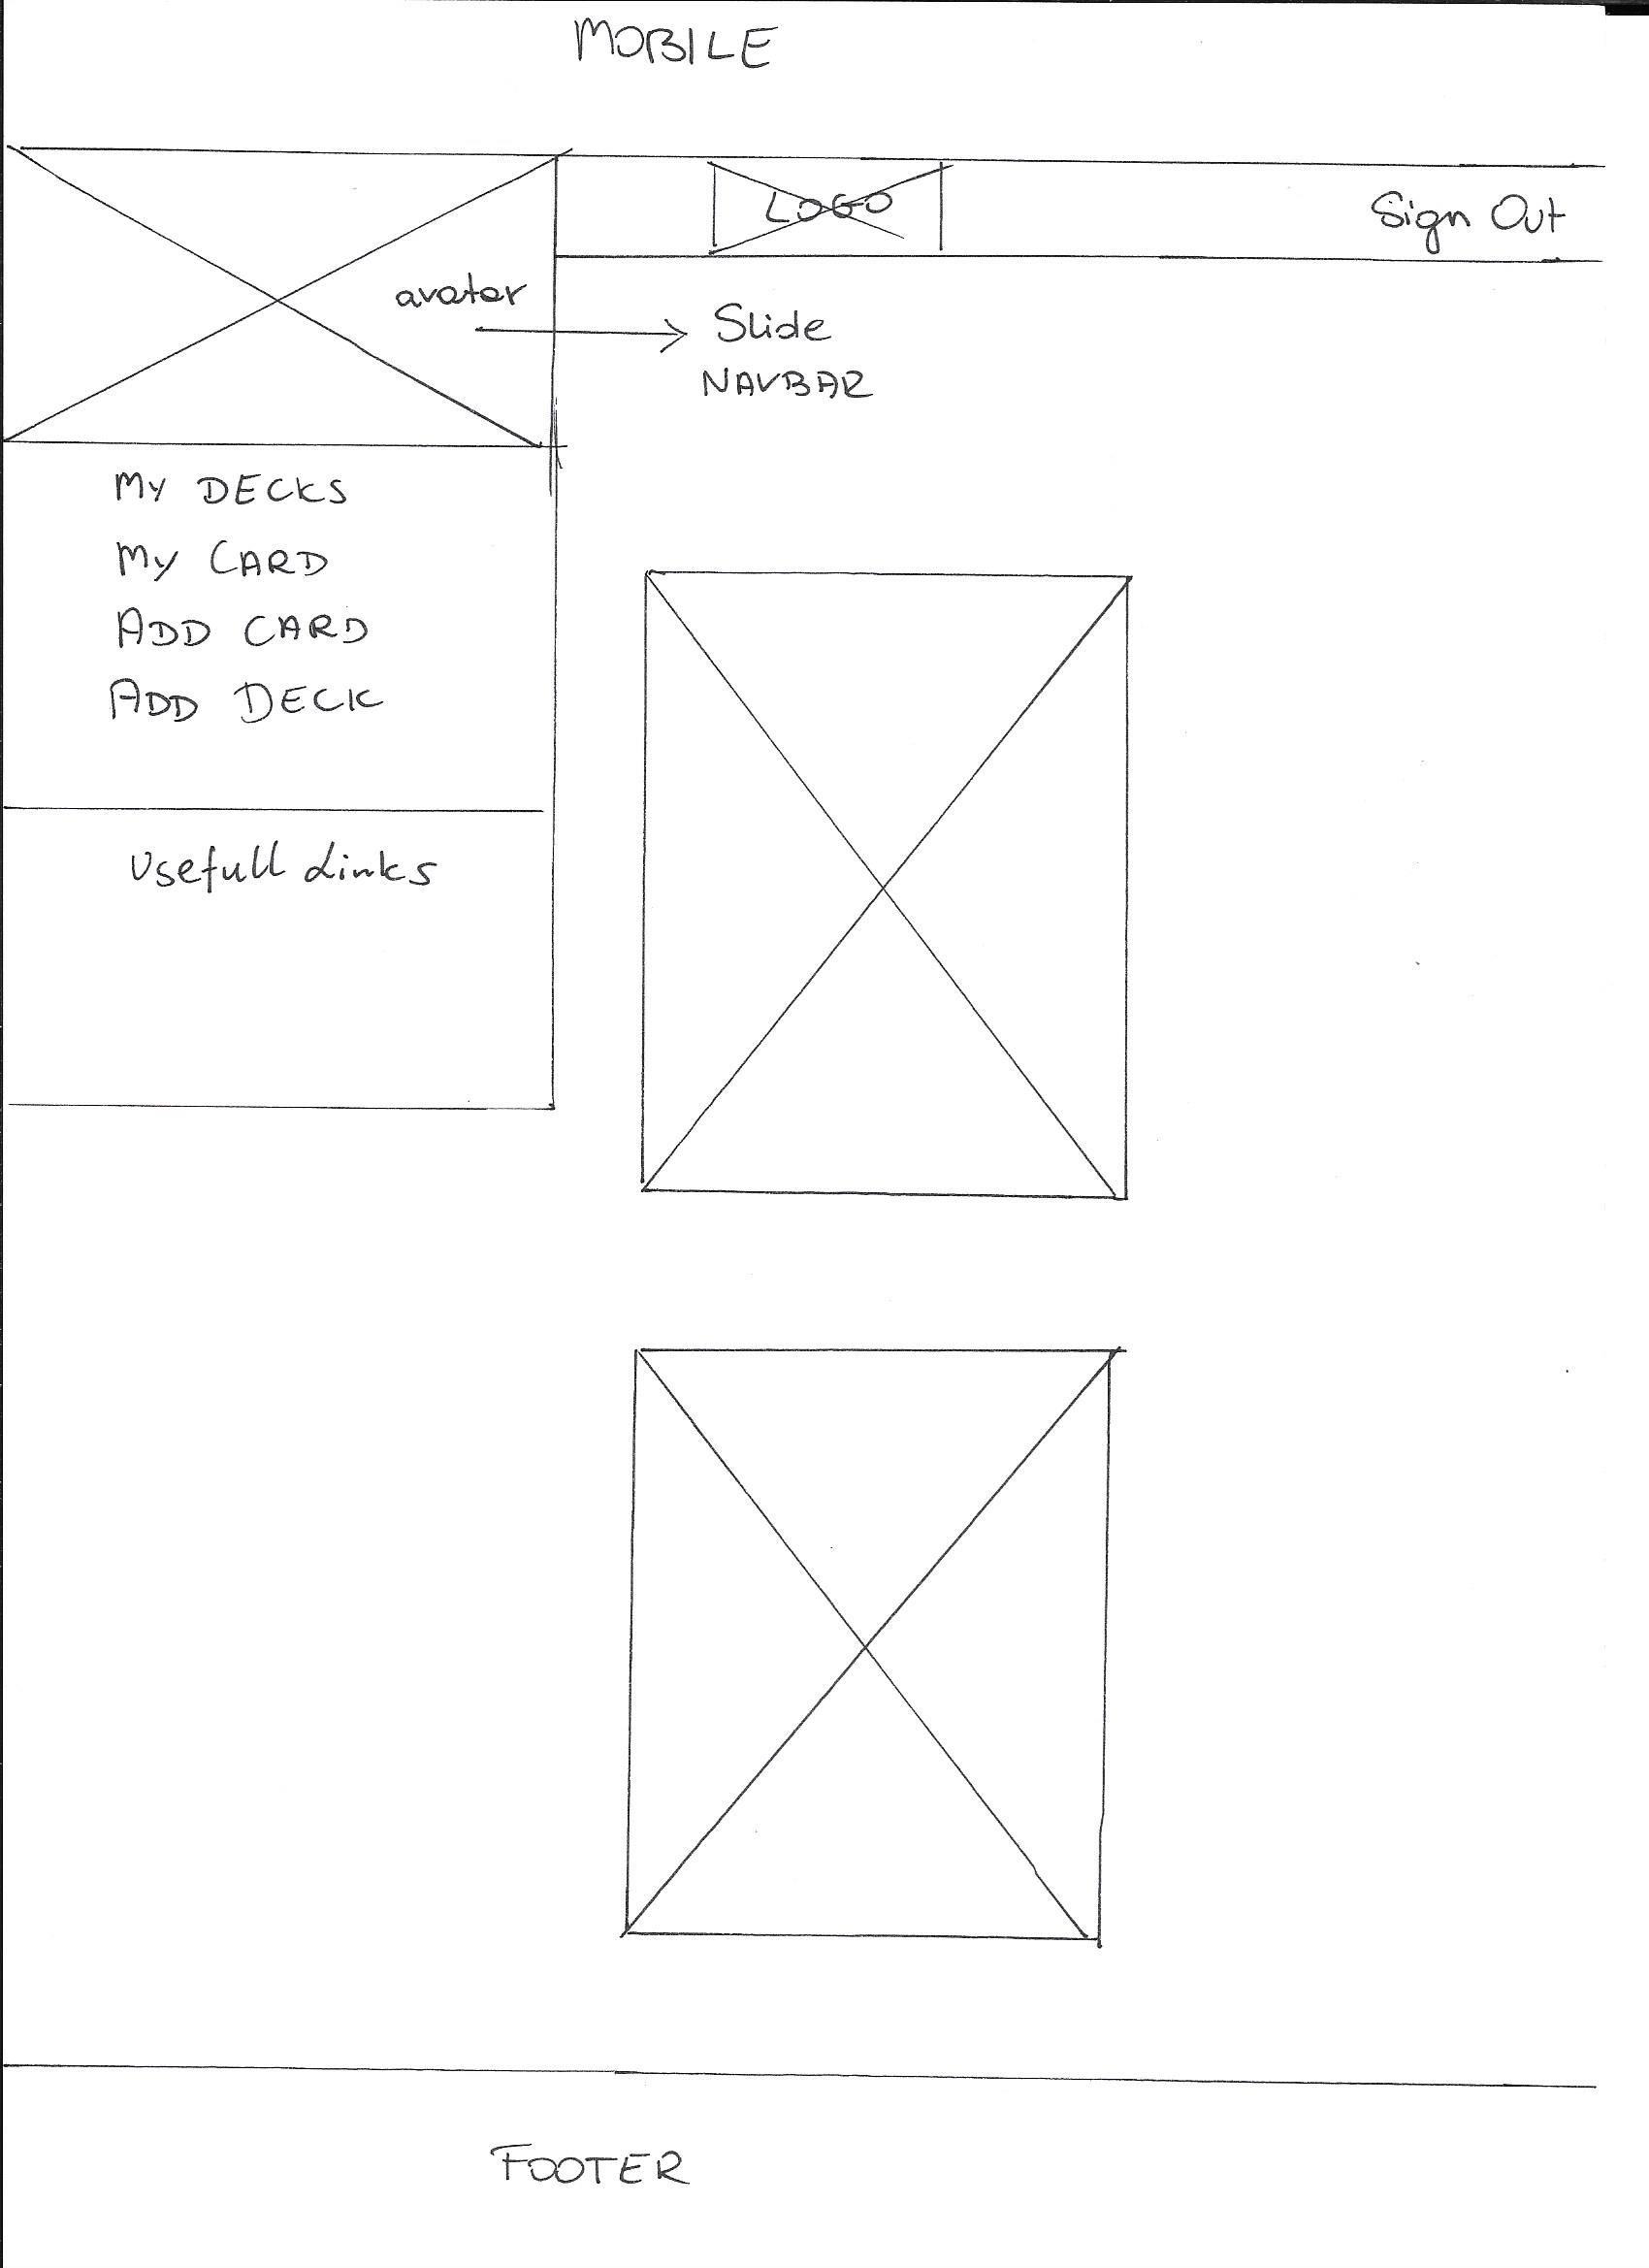 MOBILE
LOGO
Sign Out
avatar
Slide
NAVBAR
MY DECKS
MY CARD
ADD CARD
ADD DECK
Usefull Links
FOOTER